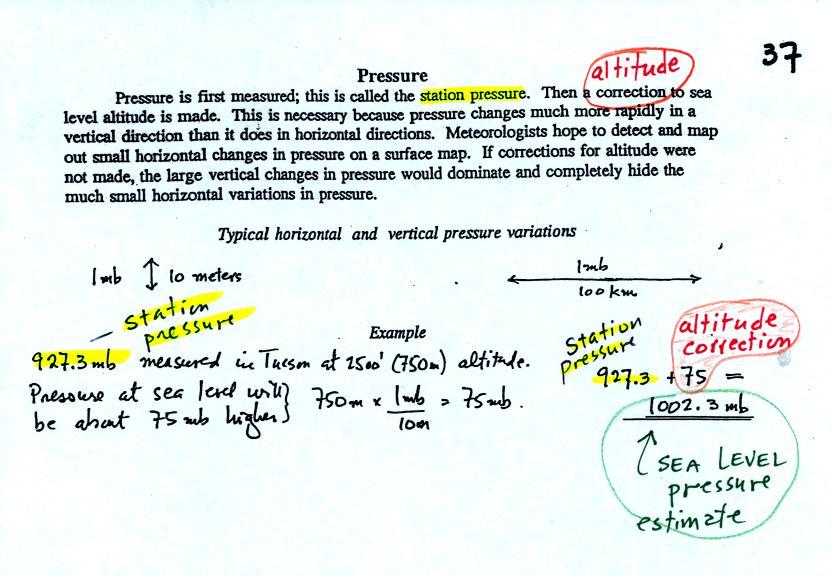 37
altitude
Pressure
Pressure is first measured; this is called the station pressure. Then a correction to sea
level altitude is made. This is necessary because pressure changes much more rapidly in a
vertical direction than it does in horizontal directions. Meteorologists hope to detect and map
out small horizontal changes in pressure on a surface map. If corrections for altitude were
not made, the large vertical changes in pressure would dominate and completely hide the
much small horizontal variations in pressure.
Typical horizontal and vertical pressure variations
1mb ↕ 10 meters
1mb
100 km
station
pressure
Example
927.3 mb measured in Tucson at 2500' (750m) altitude.
Pressure at sea level will }
be about 75 mb higher }
750m x 1mb = 75 mb.
10m
Station
pressure
altitude
correction
927.3 + 75 =
1002.3 mb
SEA LEVEL
pressure
estimate